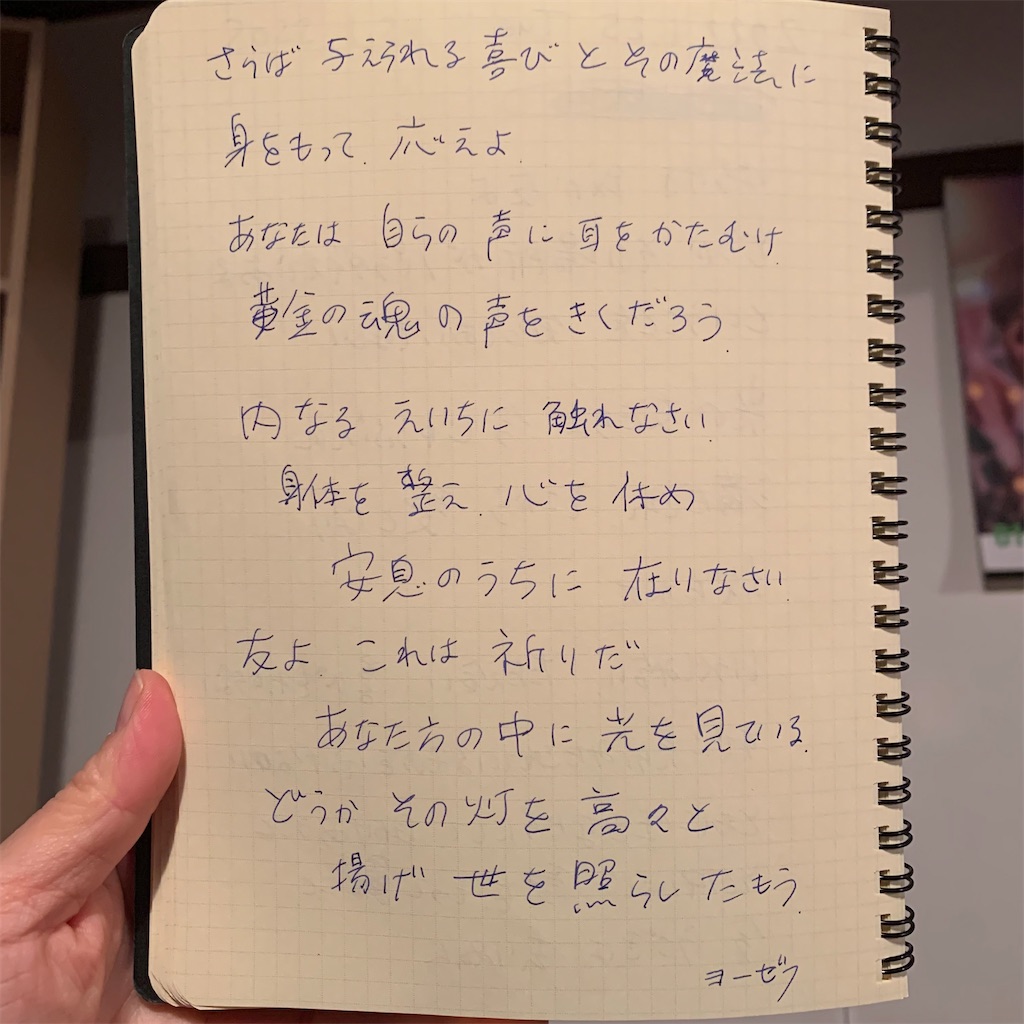 さらば 与えられる喜びとその魔法に
身をもって、応えよ。
あなたは 自らの声に耳をかたむけ
黄金の魂の声をきくだろう。
内なる えいちに 触れなさい。
身体を整え、心を休め
安息のうちに 在りなさい。
友よ これは祈りだ
あなた方の中に光を見ている。
どうか その灯を高々と
揚げ 世を照らしたもう。
ヨーゼフ